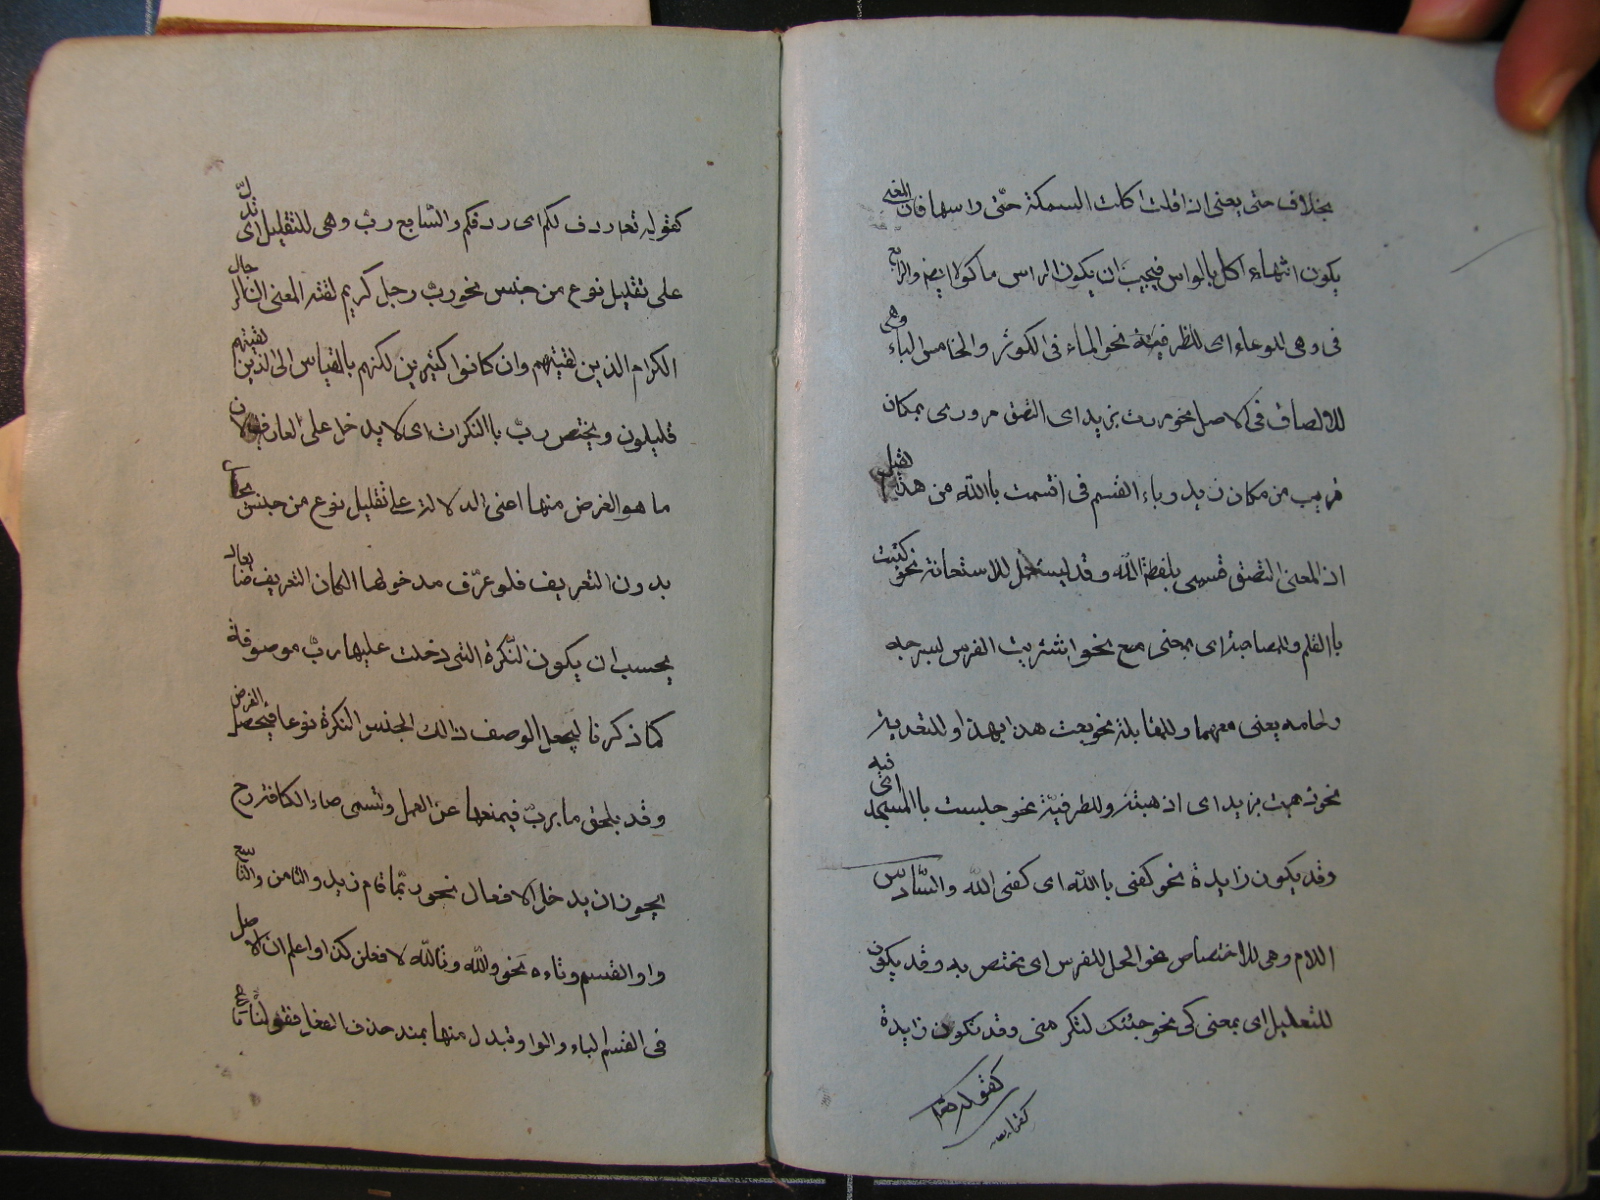 بخلاف حتى يعنى ان اقلت اكلت السمكة حتى راسها فان المعنى
يكون انتهاء اكل بالراس فيجب ان يكون الراس ماكولا ايضا والرابع
فى وهى للوعاء اى للظرفية نحو الماء فى الكوز والخامس الباء وهى
للالصاق فى الاصل نحو مررت بزيد اى التصق مرورى بمكان
قريب من مكان زيد وباء القسم فى اقسمت باالله من هذا القبيل
اذ المعنى التصق قسمى بلفظة الله وقد يستعمل للاستعانة نحو كتبت
باالقلم وللمصاحبة اى بمعنى مع نحو اشتريت الفرس بسرجه
ولجامه يعنى معهما وللمقابلة نحو بعت هذا بهذا وللتعدية
نحو ذهبت بزيد اى اذهبته وللظرفية نحو جلست باالمسجد اى فيه
وقد يكون زايدة نحو كفى باالله اى كفى الله والسادس
اللام وهى للاختصاص نحو الجل للفرس اى مختص به وقد يكون
للتعليل اى بمعنى كى نحو جئتك لتكرمنى وقد تكون زايدة
كقوله تعا
كقوله تعا ردف لكم اى ردفكم والسابع رب وهى للتقليل اى تدل
على تقليل نوع من جنس نحو رب رجل كريم لقيته المعنى ان الرجال
الكرام الذين لقيتهم وان كانوا كثيرين لكنهم بالقياس الى الذين لقيتهم
قليلون ويختص رب باالنكرات اى لا يدخل على المعارف لان
ما هو الغرض منها اعنى الدلالة على تقليل نوع من جنس يحصل
بدون التعريف فلو عرف مدخولها لكان التعريف ضايعا
يجب ان يكون النكرة التى دخلت عليها رب موصوفة
كما ذكرنا ليجعل الوصف ذالك الجنس النكرة نوعا فيحصل الغرض
وقد يلحق ما برب فيمنعها عن العمل وتسمى ماء الكافة وح
يجوز ان يدخل الافعال نحو ربما قام زيد والثامن والتاسع
واو القسم وتاءه نحو والله وتالله لافعلن كذا واعلم ان الاصل
فى القسم الباء والواو تبدل منها عند حذف الفعل فقولنا